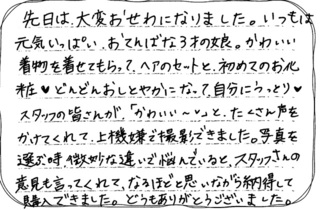 先日は、大変おせわになりました。いつもは
元気いっぱい、おてんばな3才の娘。かわいい
着物を着せてもらって、ヘアのセットと、初めてのお化
粧♥どんどんおしとやかになって、自分にうっとり♥
スタッフの皆さんが、「かわいい〜♡」と、たくさん声を
かけてくれて、上機嫌で撮影できました。写真を
選ぶ時、微妙な違いで悩んでいると、スタッフさんの
意見も言ってくれて、なるほどと思いながら納得して
購入できました。どうもありがとうございました。